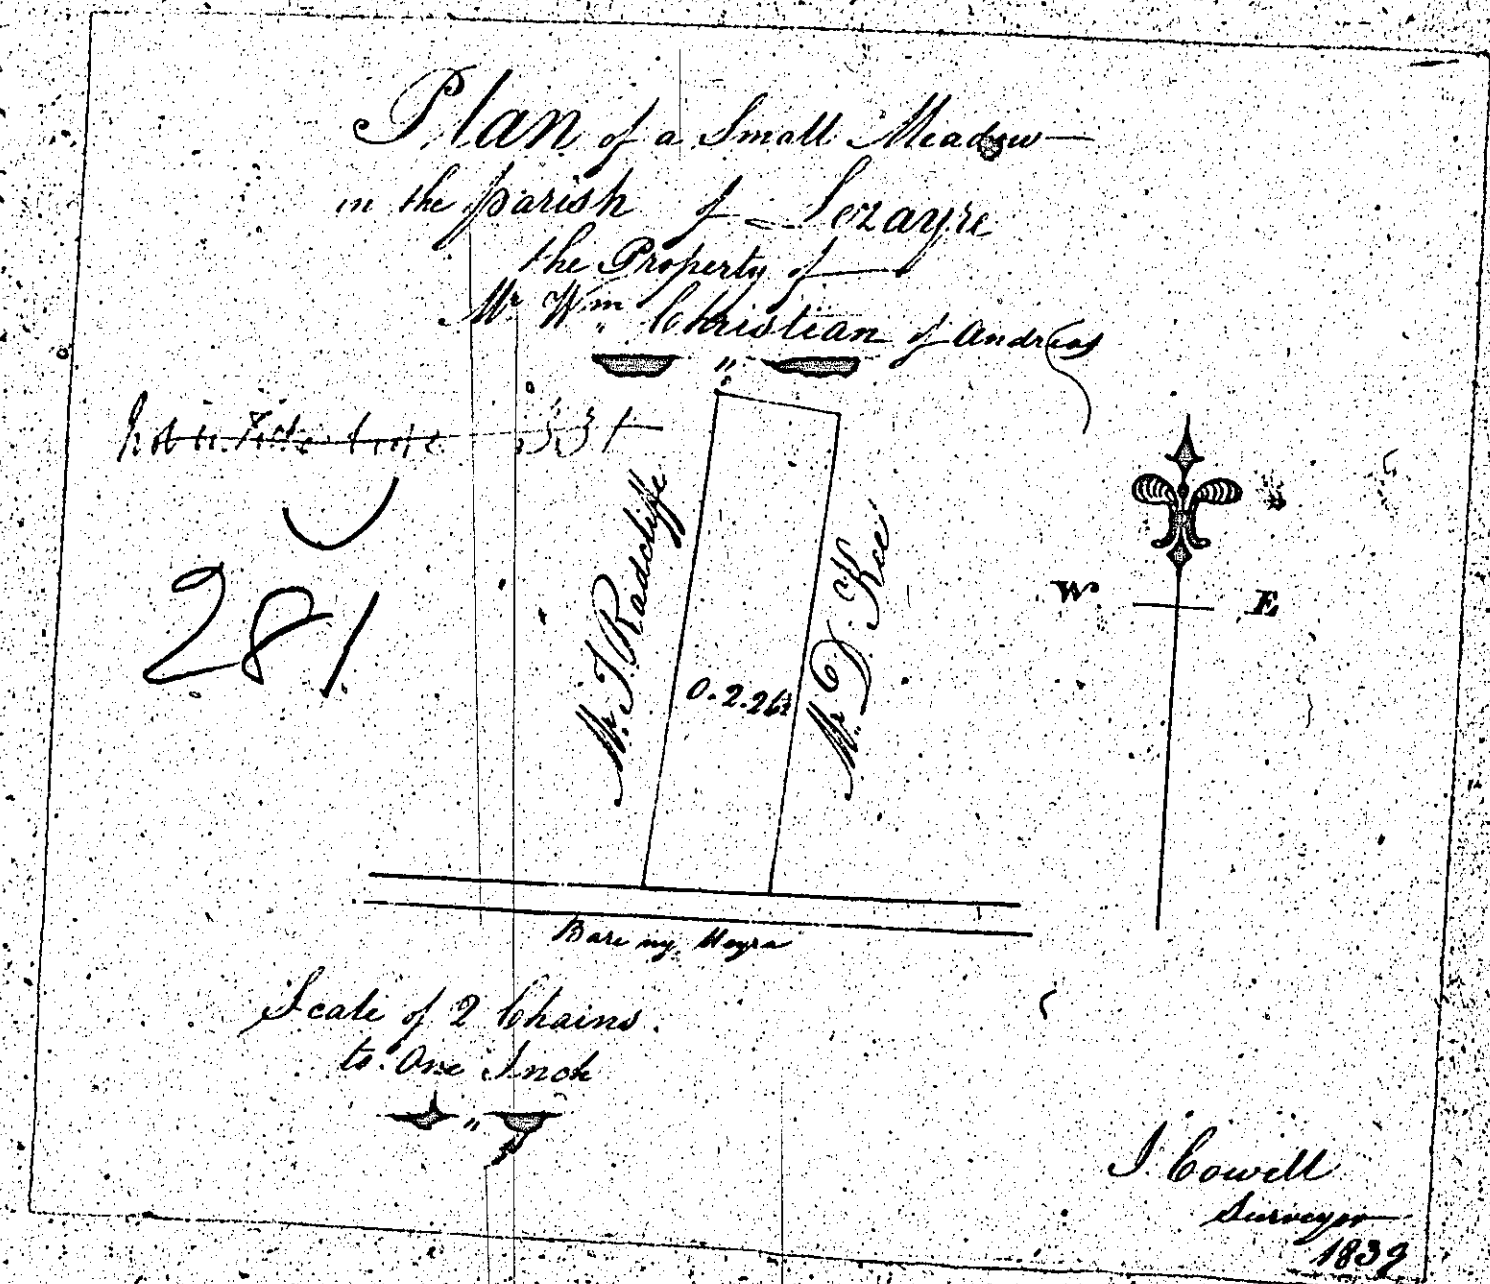 Plan of a Small Meadow
in the parish of Lezayre
the Property of
Mr Wm Christian of Andreas
331
281
Mr. J. Radcliffe
0.2.26
Mr. D. Kee
W E
Scale of 2 Chains
to One Inch
J. Cowell
Surveyor
1839